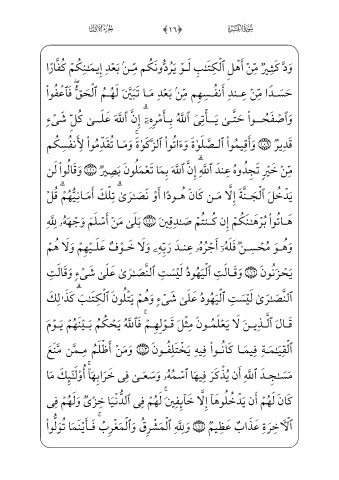 سُورَةُ البَقَرَةِ ﴿١٦﴾ الجُزْءُ الأَوَّلُ
وَدَّ كَثِيرٌ مِّنْ أَهْلِ ٱلْكِتَـٰبِ لَوْ يَرُدُّونَكُم مِّنۢ بَعْدِ إِيمَـٰنِكُمْ كُفَّارًا
حَسَدًا مِّنْ عِندِ أَنفُسِهِم مِّنۢ بَعْدِ مَا تَبَيَّنَ لَهُمُ ٱلْحَقُّ ۖ فَٱعْفُوا۟
وَٱصْفَحُوا۟ حَتَّىٰ يَأْتِىَ ٱللَّهُ بِأَمْرِهِۦٓ ۗ إِنَّ ٱللَّهَ عَلَىٰ كُلِّ شَىْءٍ
قَدِيرٌ ﴿١٠٩﴾ وَأَقِيمُوا۟ ٱلصَّلَوٰةَ وَءَاتُوا۟ ٱلزَّكَوٰةَ ۚ وَمَا تُقَدِّمُوا۟ لِأَنفُسِكُم
مِّنْ خَيْرٍ تَجِدُوهُ عِندَ ٱللَّهِ ۗ إِنَّ ٱللَّهَ بِمَا تَعْمَلُونَ بَصِيرٌ ﴿١١٠﴾ وَقَالُوا۟ لَن
يَدْخُلَ ٱلْجَنَّةَ إِلَّا مَن كَانَ هُودًا أَوْ نَصَـٰرَىٰ ۗ تِلْكَ أَمَانِيُّهُمْ ۗ قُلْ
هَاتُوا۟ بُرْهَـٰنَكُمْ إِن كُنتُمْ صَـٰدِقِينَ ﴿١١١﴾ بَلَىٰ مَنْ أَسْلَمَ وَجْهَهُۥ لِلَّهِ
وَهُوَ مُحْسِنٌ فَلَهُۥٓ أَجْرُهُۥ عِندَ رَبِّهِۦ وَلَا خَوْفٌ عَلَيْهِمْ وَلَا هُمْ
يَحْزَنُونَ ﴿١١٢﴾ وَقَالَتِ ٱلْيَهُودُ لَيْسَتِ ٱلنَّصَـٰرَىٰ عَلَىٰ شَىْءٍ وَقَالَتِ
ٱلنَّصَـٰرَىٰ لَيْسَتِ ٱلْيَهُودُ عَلَىٰ شَىْءٍ وَهُمْ يَتْلُونَ ٱلْكِتَـٰبَ ۗ كَذَٰلِكَ
قَالَ ٱلَّذِينَ لَا يَعْلَمُونَ مِثْلَ قَوْلِهِمْ ۚ فَٱللَّهُ يَحْكُمُ بَيْنَهُمْ يَوْمَ
ٱلْقِيَـٰمَةِ فِيمَا كَانُوا۟ فِيهِ يَخْتَلِفُونَ ﴿١١٣﴾ وَمَنْ أَظْلَمُ مِمَّن مَّنَعَ
مَسَـٰجِدَ ٱللَّهِ أَن يُذْكَرَ فِيهَا ٱسْمُهُۥ وَسَعَىٰ فِى خَرَابِهَآ ۚ أُو۟لَـٰٓئِكَ مَا
كَانَ لَهُمْ أَن يَدْخُلُوهَآ إِلَّا خَآئِفِينَ ۚ لَهُمْ فِى ٱلدُّنْيَا خِزْىٌ وَلَهُمْ فِى
ٱلْـَٔاخِرَةِ عَذَابٌ عَظِيمٌ ﴿١١٤﴾ وَلِلَّهِ ٱلْمَشْرِقُ وَٱلْمَغْرِبُ ۚ فَأَيْنَمَا تُوَلُّوا۟